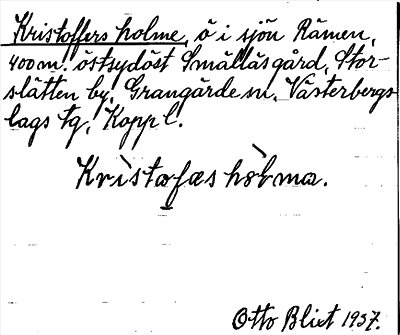 Kristoffers holme, ö i sjön Rämen,
400 m. östsydöst Smällåsgård, Stor-
slätten by, Grangärde sn, Västerbergs
lags tg, Kopp l.
Krìstɷfæs hòlmɷ.
Otto Blixt 1937.